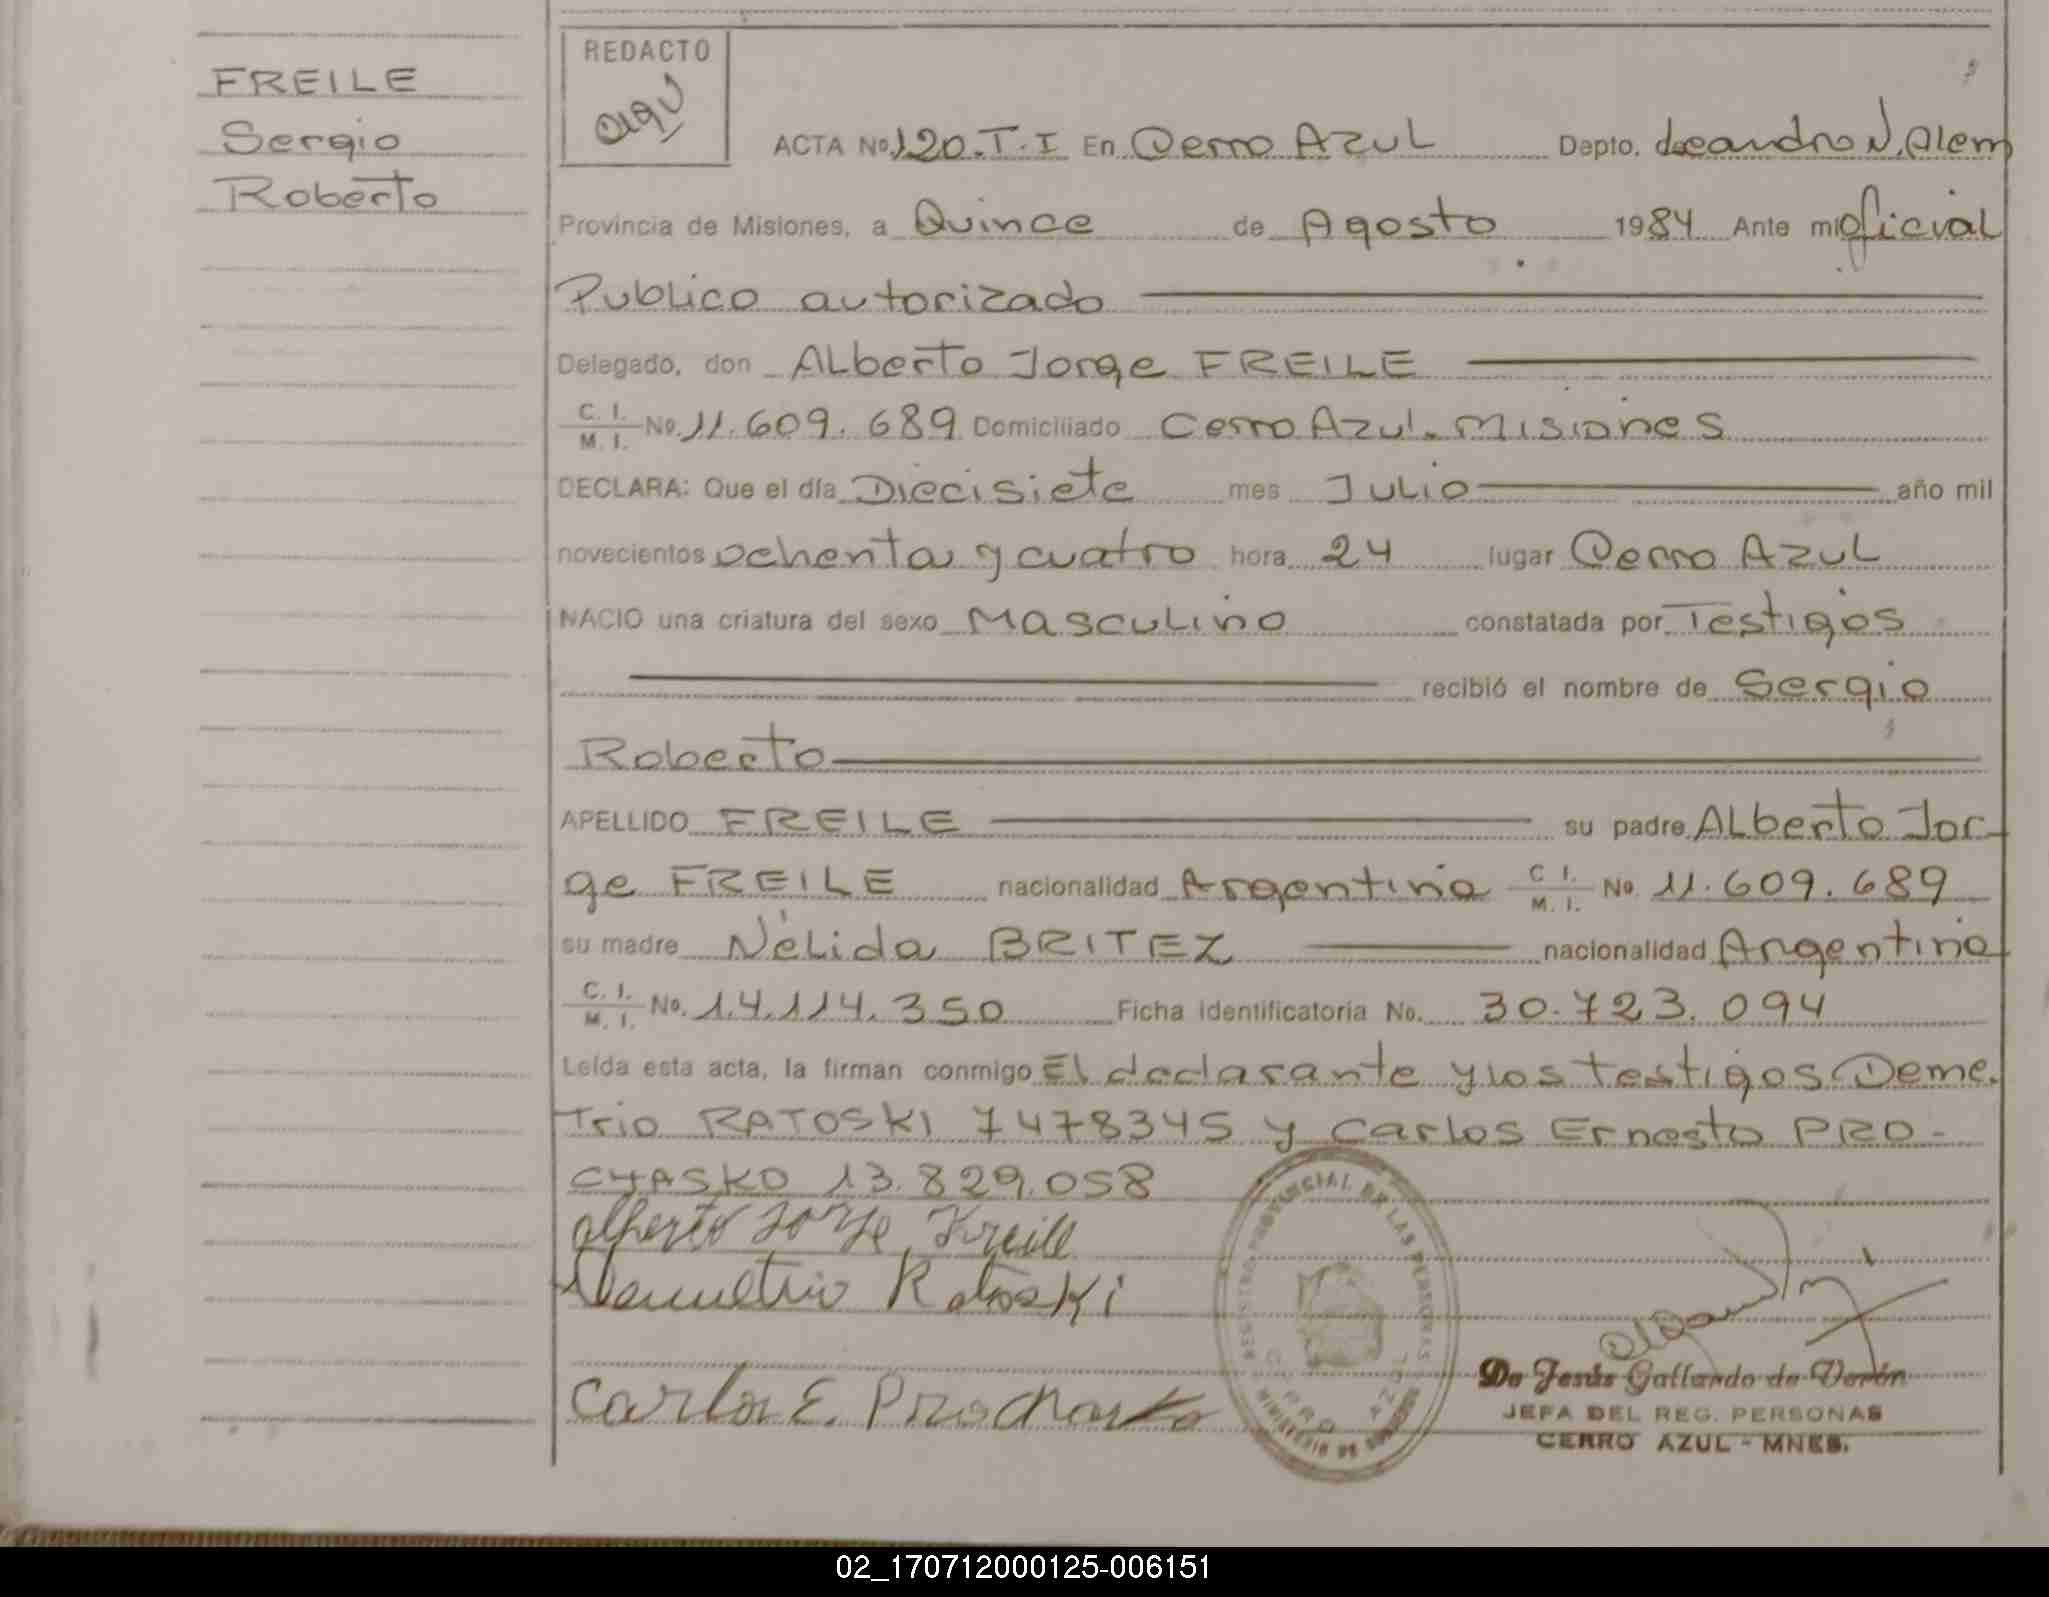 FREILE
Sergio
Roberto
REDACTO
ACTA No. 120.T.I En Cerro Azul Depto. Leandro N. Alem
Provincia de Misiones, a Quince de Agosto 1984 Ante mi oficial
Publico autorizado
Delegado, don Alberto Jorge FREILE
C. I. / M. I. No. 11.609.689 Domiciliado Cerro Azul. Misiones
DECLARA: Que el día Diecisiete mes Julio año mil
novecientos ochenta y cuatro hora 24 lugar Cerro Azul
NACIO una criatura del sexo Masculino constatada por Testigos
recibió el nombre de Sergio
Roberto
APELLIDO FREILE su padre Alberto Jor-
ge FREILE nacionalidad Argentina C I. / M. I. No. 11.609.689
su madre Nélida BRITEZ nacionalidad Argentina
C. I. / M. I. No. 14.114.350 Ficha identificatoria No. 30.723.094
Leída esta acta, la firman conmigo El declarante y los testigos Deme.
trio RATOSKI 7478345 y Carlos Ernesto PRO-
CHASKO 13.829.058
Alberto Jorge Freile
Demetrio Ratoski
Carlos E. Prochasko
REGISTRO PROVINCIAL DE LAS PERSONAS
CERRO AZUL
MINISTERIO DE GOBIERNO
De Jesús Gallardo de Verón
JEFA DEL REG. PERSONAS
CERRO AZUL - MNES.
02_170712000125-006151